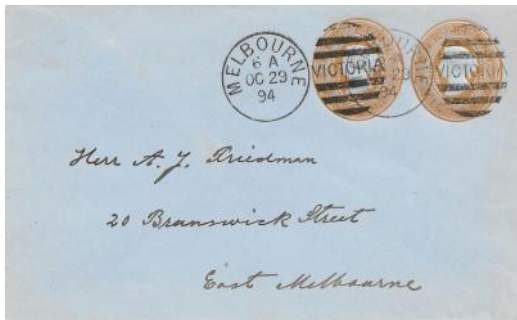 MELBOURNE
6 A
OC 29
94
VICTORIA
29
94
VICTORIA
Herr A. J. Friedman
20 Brunswick Street
East Melbourne